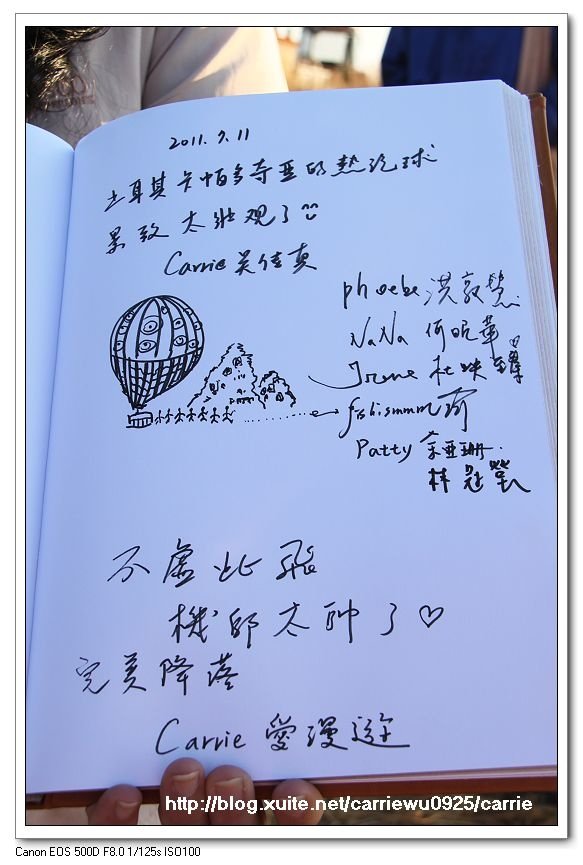 2011.7.11
土耳其卡帕多奇亞的熱汽球
景致太壯观了
Carrie 吳佳真
phoebe 洪敦慧
NaNa 何昵華
Irene 杜映
Patty 亞珊
林冠瑩
不虛此飛
機師太帥了♡
完美降落
Carrie 愛漫遊
http://blog.xuite.net/carriewu0925/carrie
Canon EOS 500D F8.0 1/125s ISO100